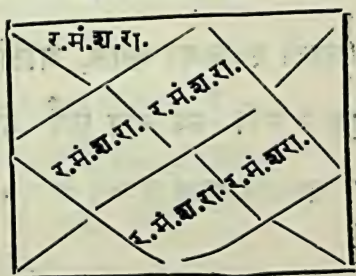 र.मं.श.रा.
र.मं.श.रा.
र.मं.श.रा.
र.मं.शरा.
र.मं.श.रा.